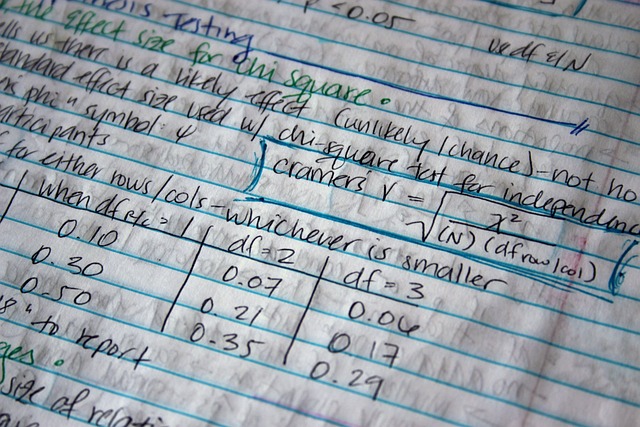 p < 0.05
Testing
effect size for chi square.
us there is a likely effect (unlikely/chance) - not
standard effect size used w/ chi-square test for independence
phi" symbol: φ
cramers V = √ x² / (N)(df row/col)
participants
for either rows/cols - whichever is smaller
when df r/c = 1 df = 2 df = 3
0.10 0.07 0.06
0.30 0.21 0.17
0.50 0.35 0.29
" to report
size of